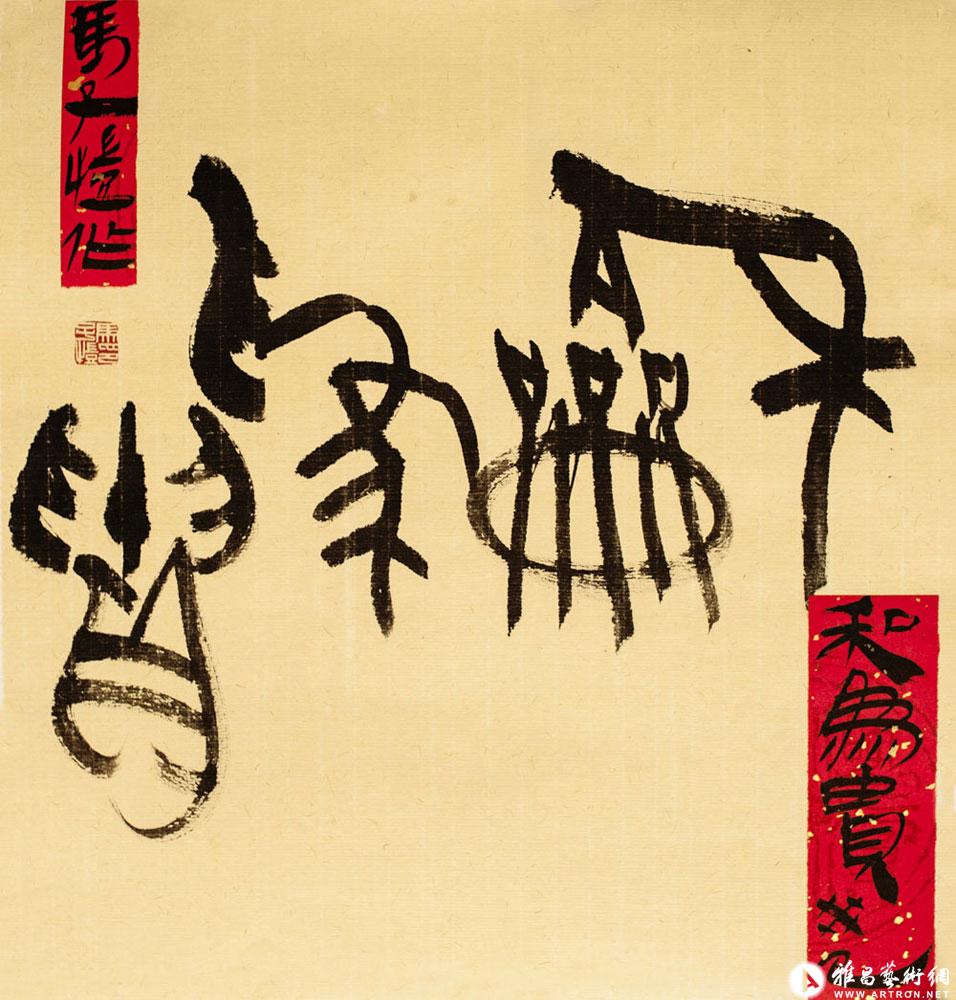 龢為貴
和為貴
馬子愷作
雅昌藝術網
WWW.ARTRON.NET